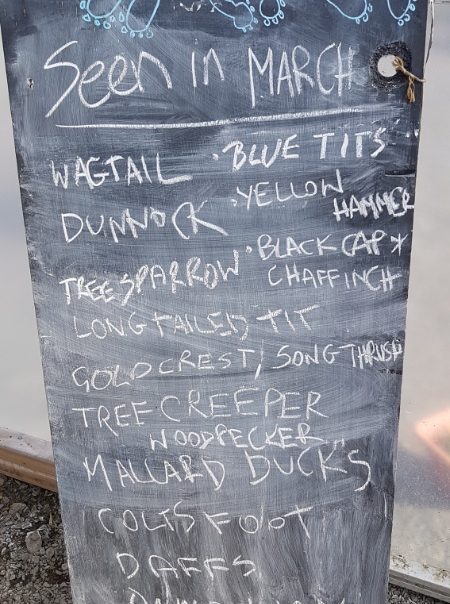 Seen in MARCH
WAGTAIL • BLUE TITS
DUNNOCK • YELLOW HAMMER
TREE SPARROW • BLACK CAP *
CHAFFINCH
LONG TAILED TIT
GOLDCREST / SONG THRUSH
TREE CREEPER
WOODPECKER
MALLARD DUCKS
COLTSFOOT
DAFFS